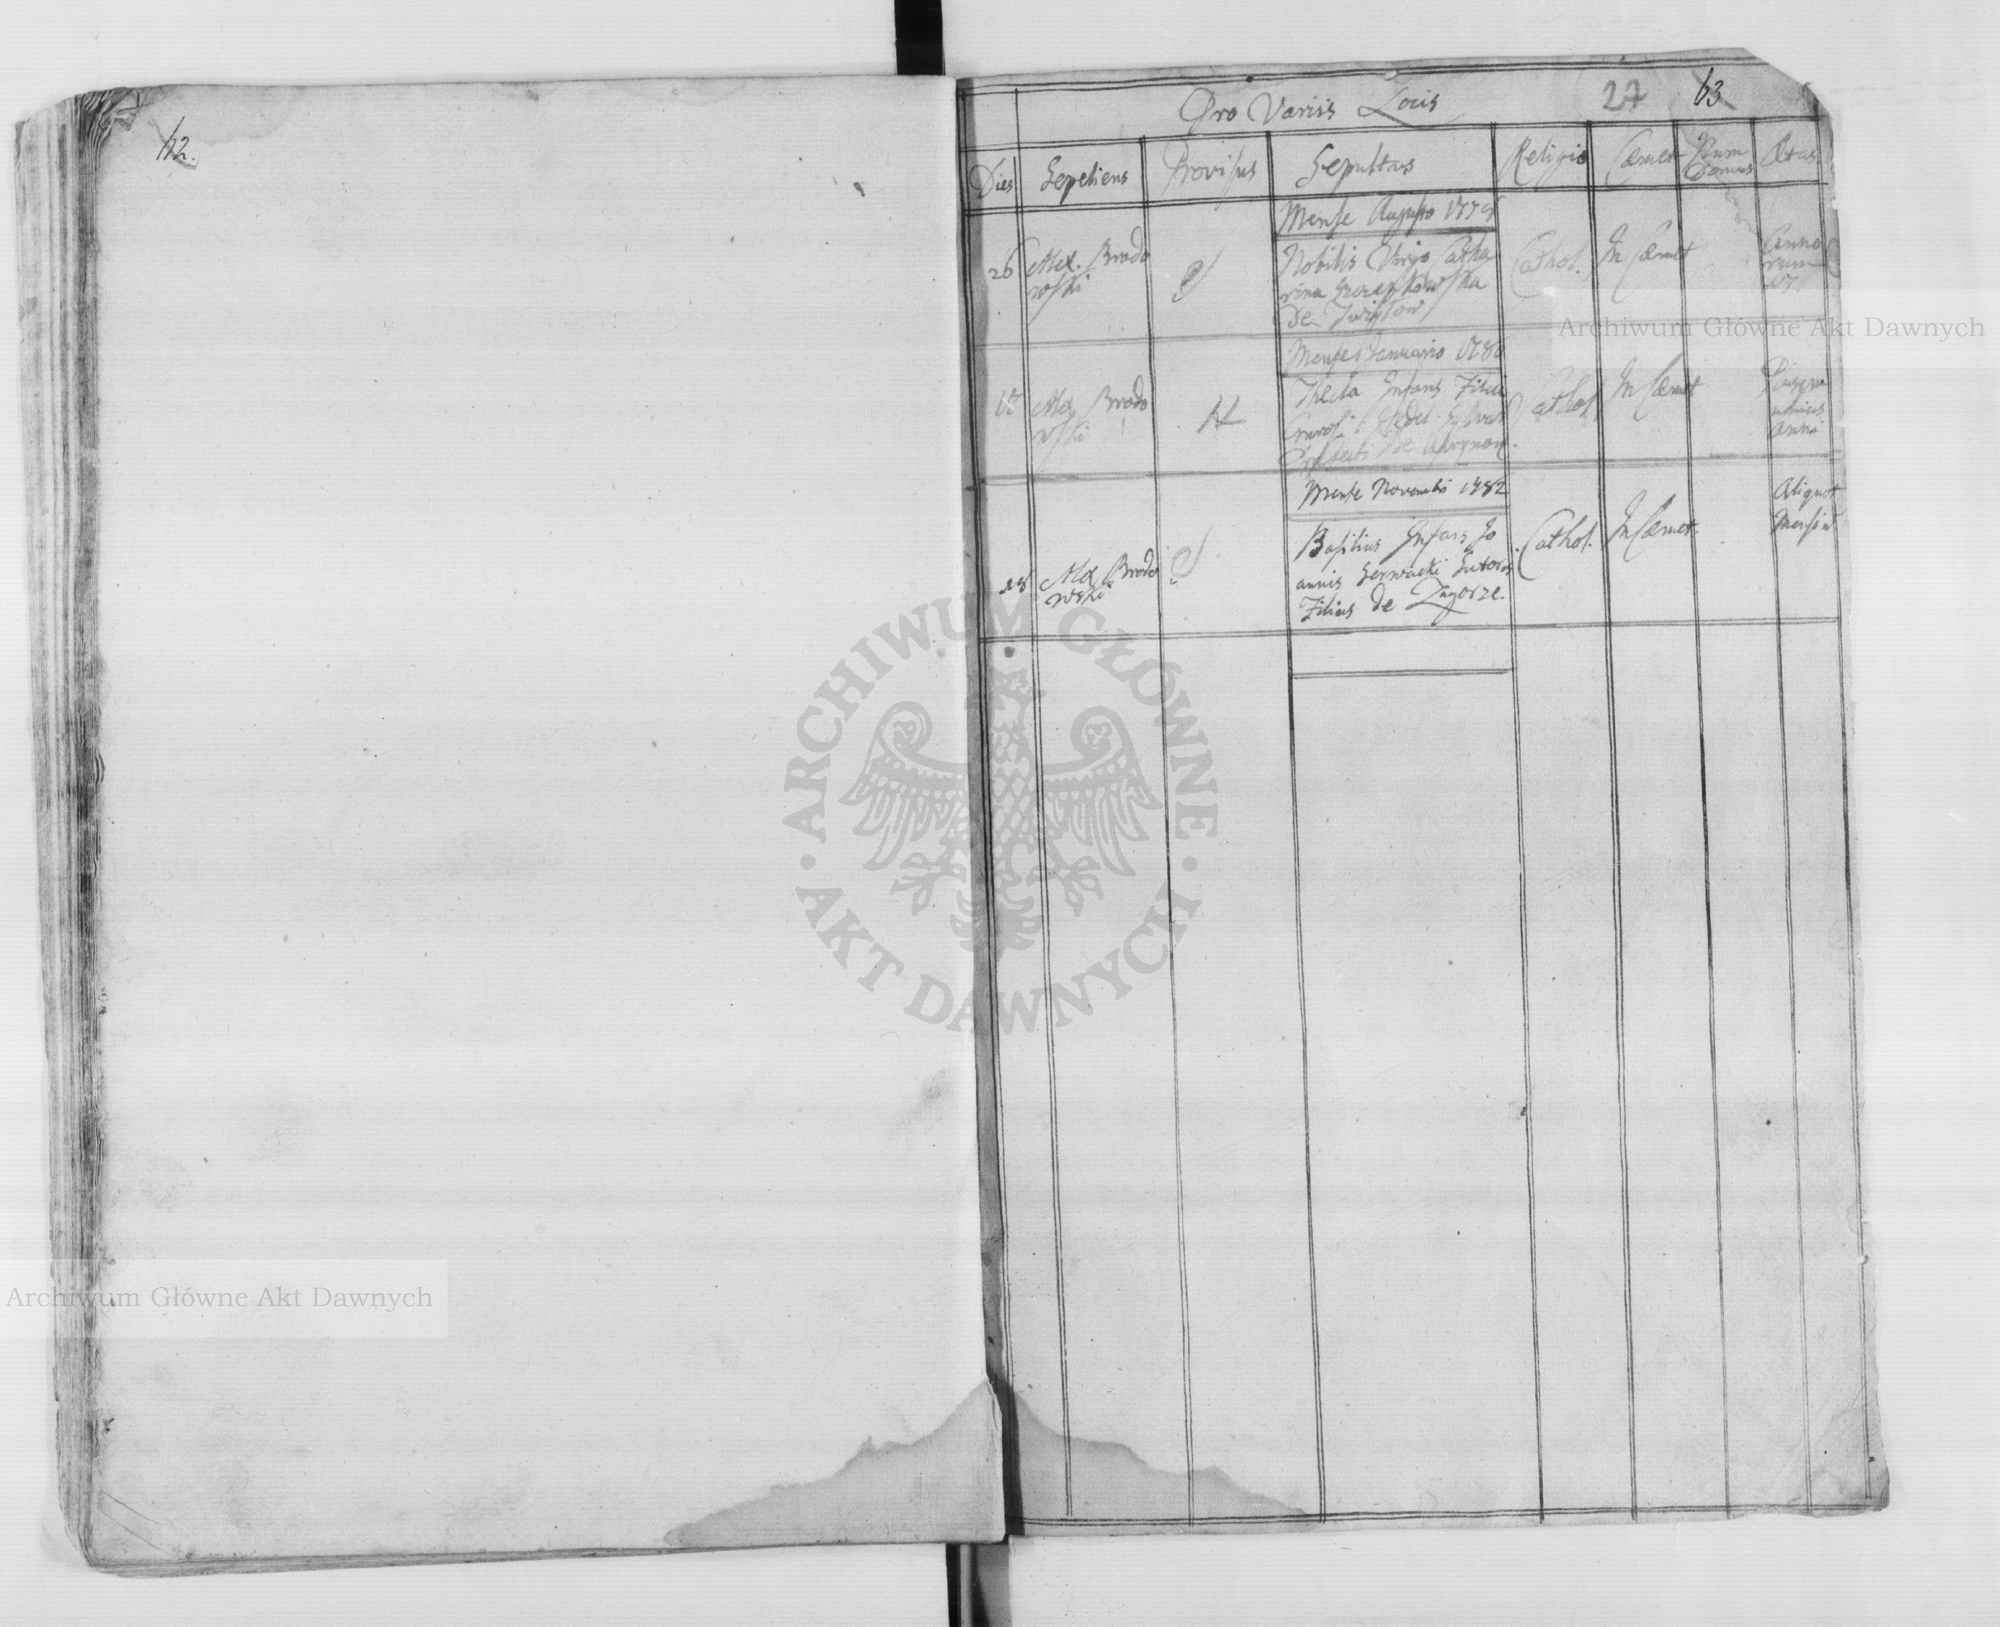 62.
Pro Variis Locis
27 63
Dies Sepeliens Provisus Sepultus Religio Cæmet Num Domus Ætas
Mense Augusto
26 Alex. Brodo
wski
Nobilis Virgo Catha
rina
De
Cathol.
In Cæmet
Anno
rum
Mense Januario
Alex Brodo
wski
Thecla Infans Filia
De
Cathol
In Cæmet
unius
anni
Mense Novembri 1782
28 Alex Brodo
wski
Basilius Infans Jo
annis Serwacki Sutoris
Filius de Zagorze.
Cathol.
In Cæmet.
Aliquot
Mensiu
ARCHIWUM GŁÓWNE AKT DAWNYCH
Archiwum Główne Akt Dawnych
Archiwum Główne Akt Dawnych